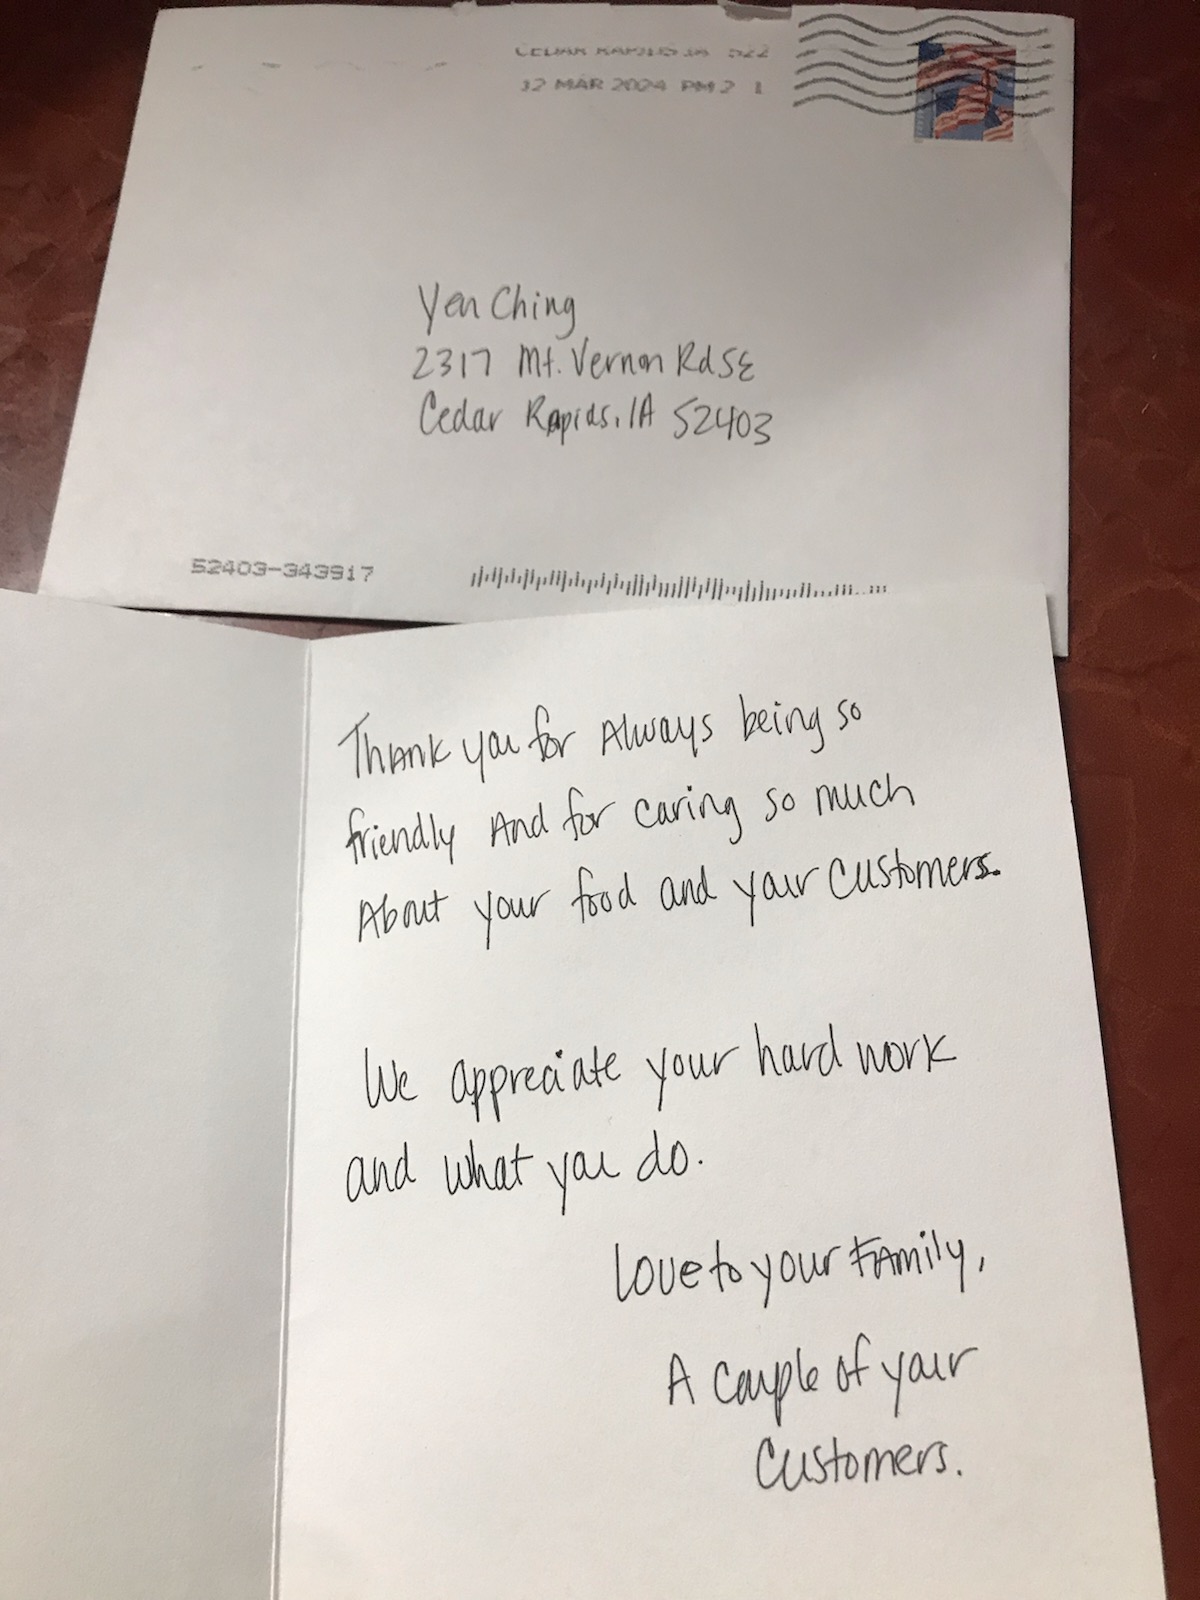 CEDAR RAPIDS IA 522
12 MAR 2024 PM 2 L
Yen Ching
2317 Mt. Vernon Rd SE
Cedar Rapids, IA 52403
52403-343917
Thank you for Always being so
friendly And for caring so much
About your food and your customers.
We appreciate your hard work
and what you do.
Love to your Family,
A couple of your
Customers.